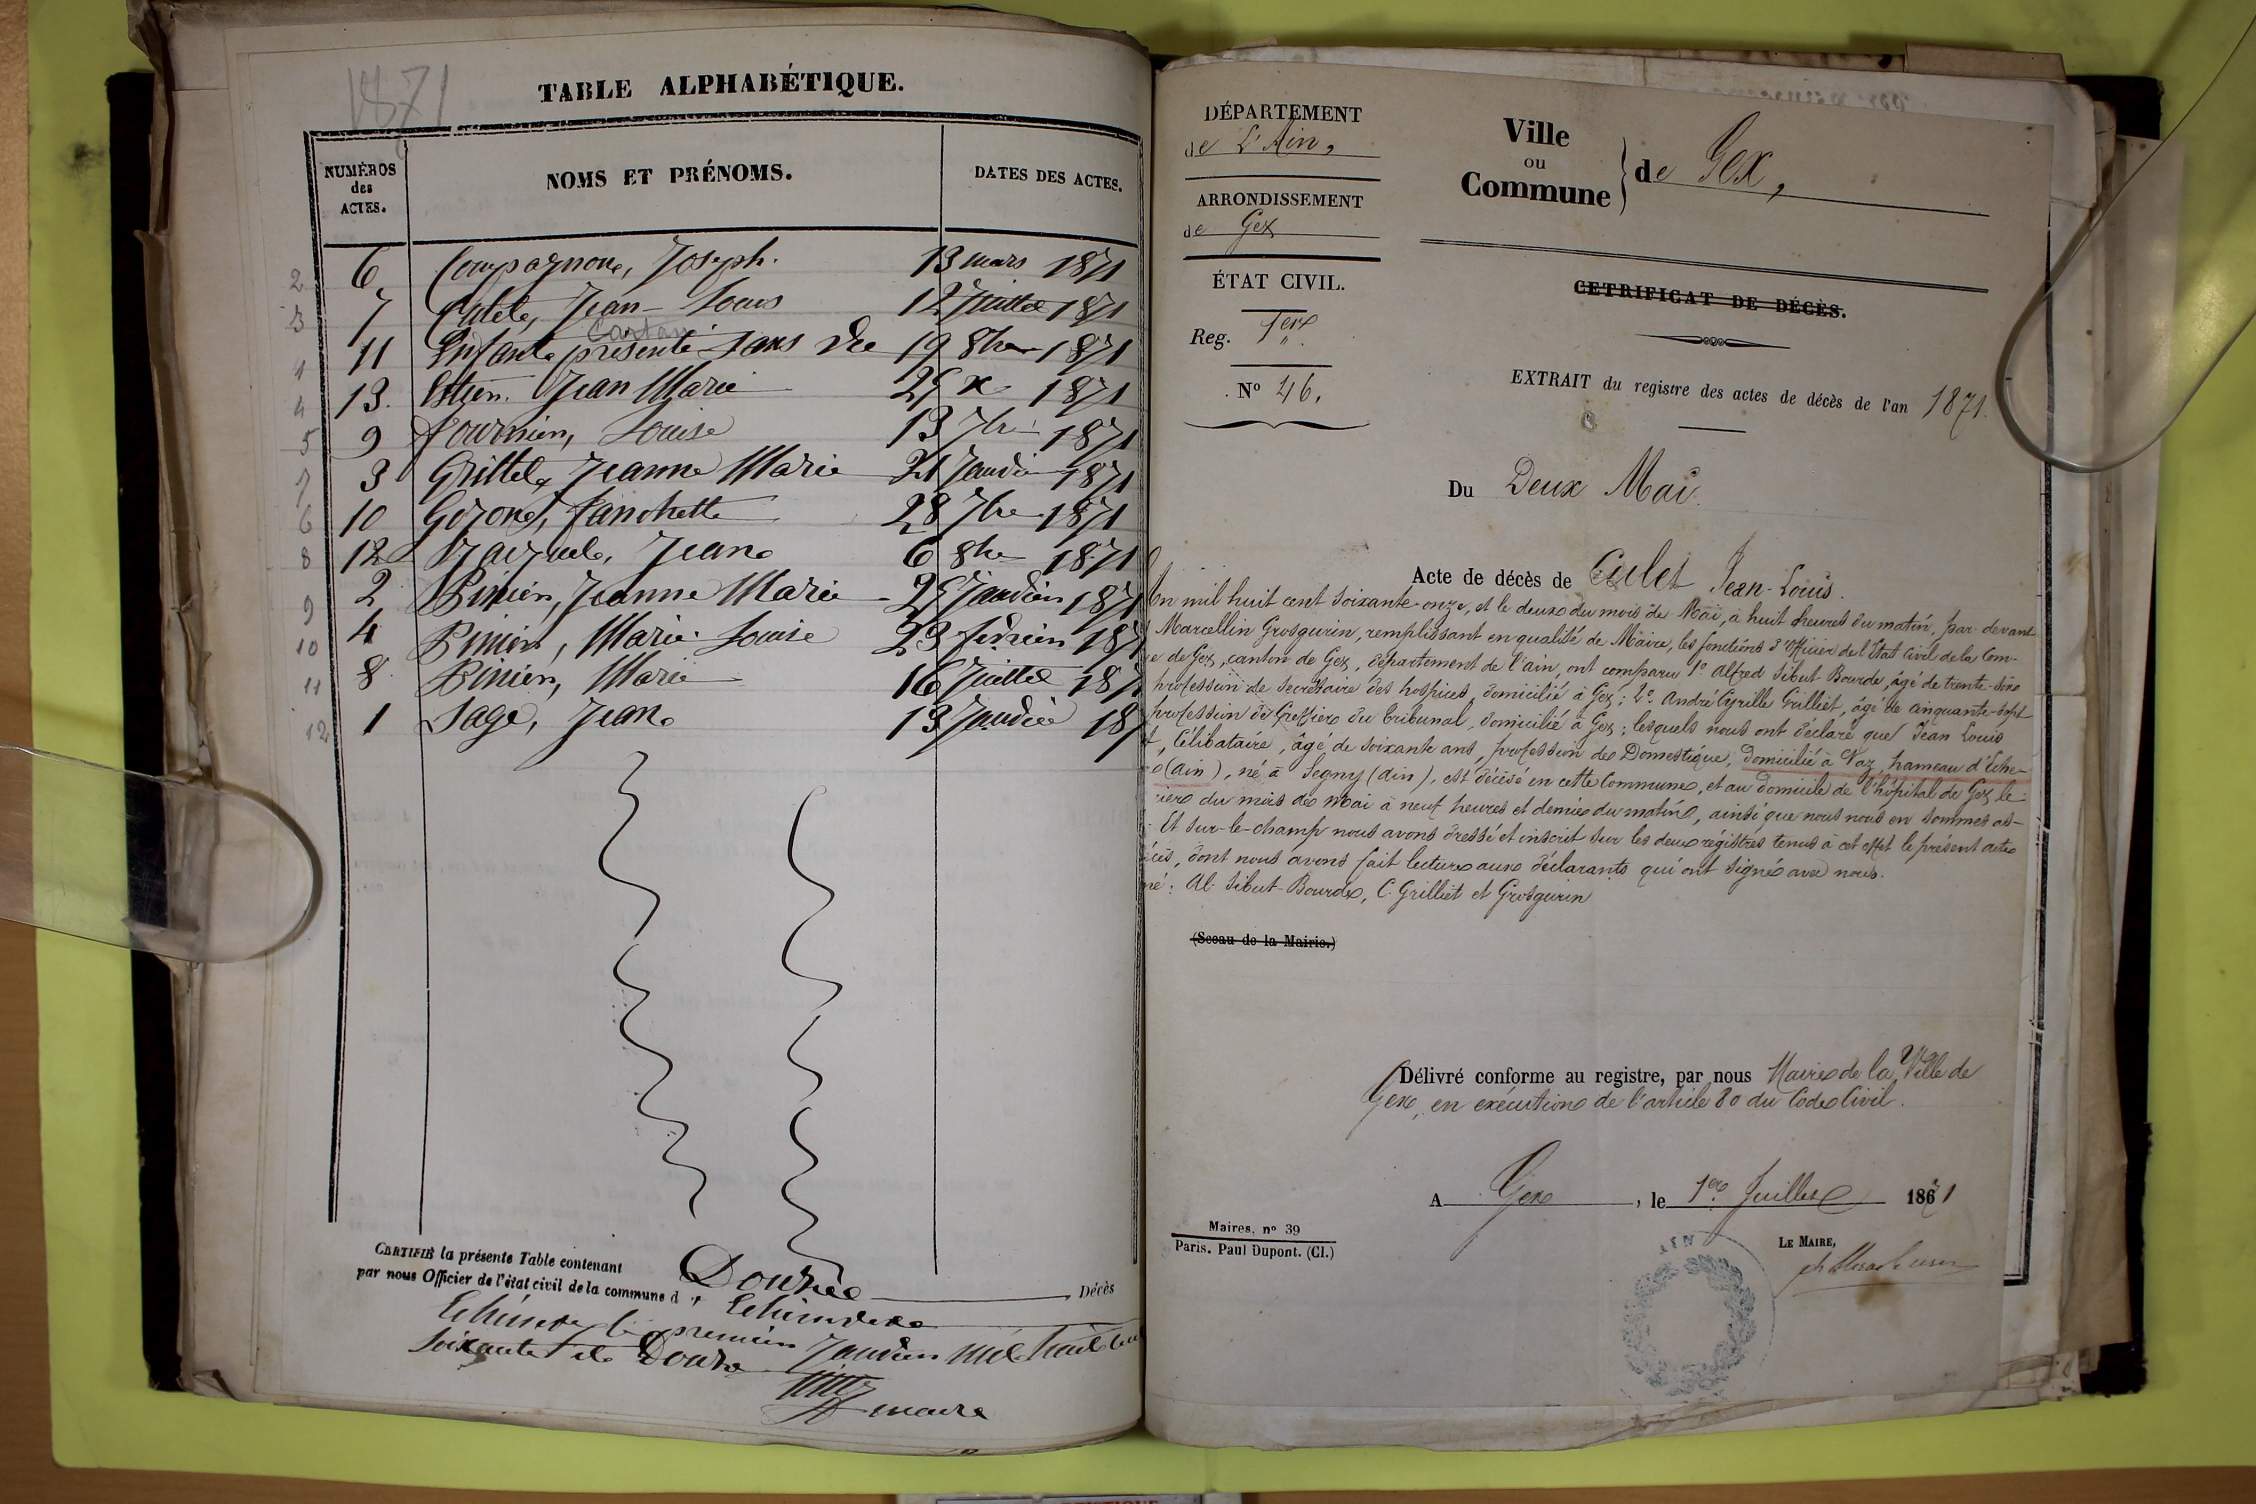 1871
TABLE ALPHABÉTIQUE.
NUMÉROS
des
ACTES.
NOMS ET PRÉNOMS.
DATES DES ACTES.
2 6 Compagnon, Joseph. 13 mars 1871
3 7 Culet, Jean-Louis 12 Juillet 1871
Cartan
1 11 Enfant présenté sans vie 19 8bre 1871
4 13. Jean Marie 25 x 1871
5 9 Fournier, Louise 13 7bre 1871
7 3 Grillet, Jeanne Marie 21 Janvier 1871
6 10 Girone, Fanchette 28 7bre 1871
8 12 Jean 6 8bre 1871
9 2 Pinier, Jeanne Marie 25 Janvier 187
10 4 Pinier, Marie Louise 23 février 187
11 8 Pinier, Marie 16 Juillet 187
12 1 Sage, Jean 13 Janvier 187
CERTIFIÉ la présente Table contenant Douze Décès
par nous Officier de l'état civil de la commune d' Echenevex
Echenevex le premier Janvier mil huit cent
soixante et Douze
maire
DÉPARTEMENT
de L'Ain,
ARRONDISSEMENT
de Gex
ÉTAT CIVIL.
Reg. 1er
No 46.
Ville
ou
Commune
de Gex,
CETRIFICAT DE DÉCÈS.
EXTRAIT du registre des actes de décès de l'an 1871.
Du Deux Mai.
Acte de décès de Culet Jean-Louis.
L'an mil huit cent soixante-onze, et le deux du mois de Mai, à huit heures du matin, par-devant
Marcellin Grosgurin, remplissant en qualité de Maire, les fonctions d'Officier de l'Etat civil de la Com-
ne de Gex, canton de Gex, département de l'ain, ont comparu 1o Alfred Sibut-Bourde, âgé de trente-
profession de Secrétaire des hospices, domicilié à Gex; 2o André Cyrille Grilliet, âgé de cinquante-sept
profession de Greffier du tribunal, domicilié à Gex; lesquels nous ont déclaré que Jean Louis
t, Célibataire, âgé de soixante ans, profession de Domestique, domicilié à Naz, hameau d'Eche-
(ain), né à Segny (ain), est décédé en cette Commune, et au domicile de l'hôpital de Gex le
ier du mois de Mai à neuf heures et demie du matin, ainsi que nous nous en sommes as-
Et sur-le-champ nous avons dressé et inscrit sur les deux régistres tenus à cet effet le présent acte
écès, dont nous avons fait lecture aux déclarants qui ont signé avec nous.
né: Al. Sibut-Bourde, C. Grilliet et Grosgurin
(Sceau de la Mairie.)
Délivré conforme au registre, par nous Maire de la Ville de
Gex, en exécution de l'article 80 du Code Civil.
A Gex, le 1er Juillet 1871
Maires, no 39
Paris. Paul Dupont. (Cl.)
LE MAIRE,